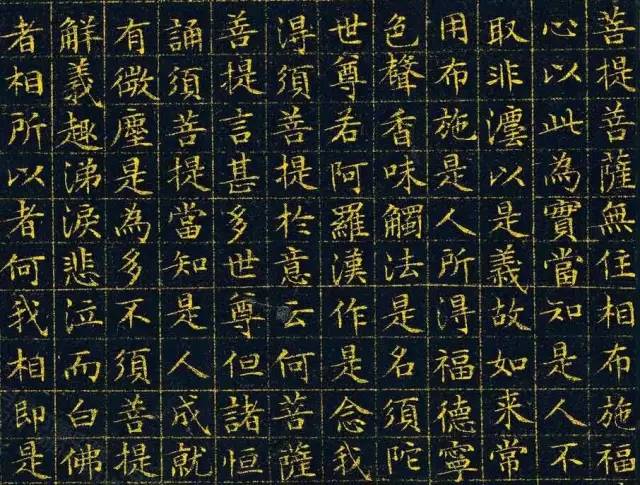 菩提菩薩無住相布施福
心以此為實當知是人不
取非灋以是義故如來常
用布施是人所淂福德寧
色聲香味觸法是名須陀
世尊若阿羅漢作是念我
淂須菩提於意云何菩薩
善提言甚多世尊但諸恒
誦須菩提當知是人成就
有微塵是為多不須善提
解義趣涕淚悲泣而白佛
者相所以者何我相即是